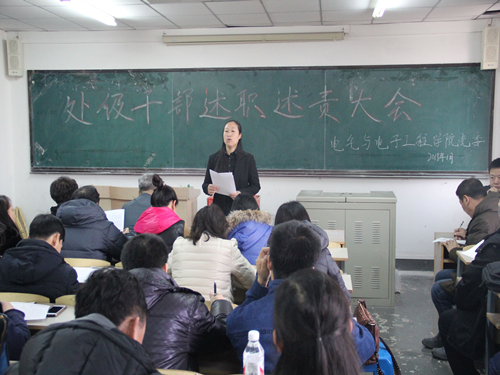 处级干部述职述责大会
电气与电子工程学院党委